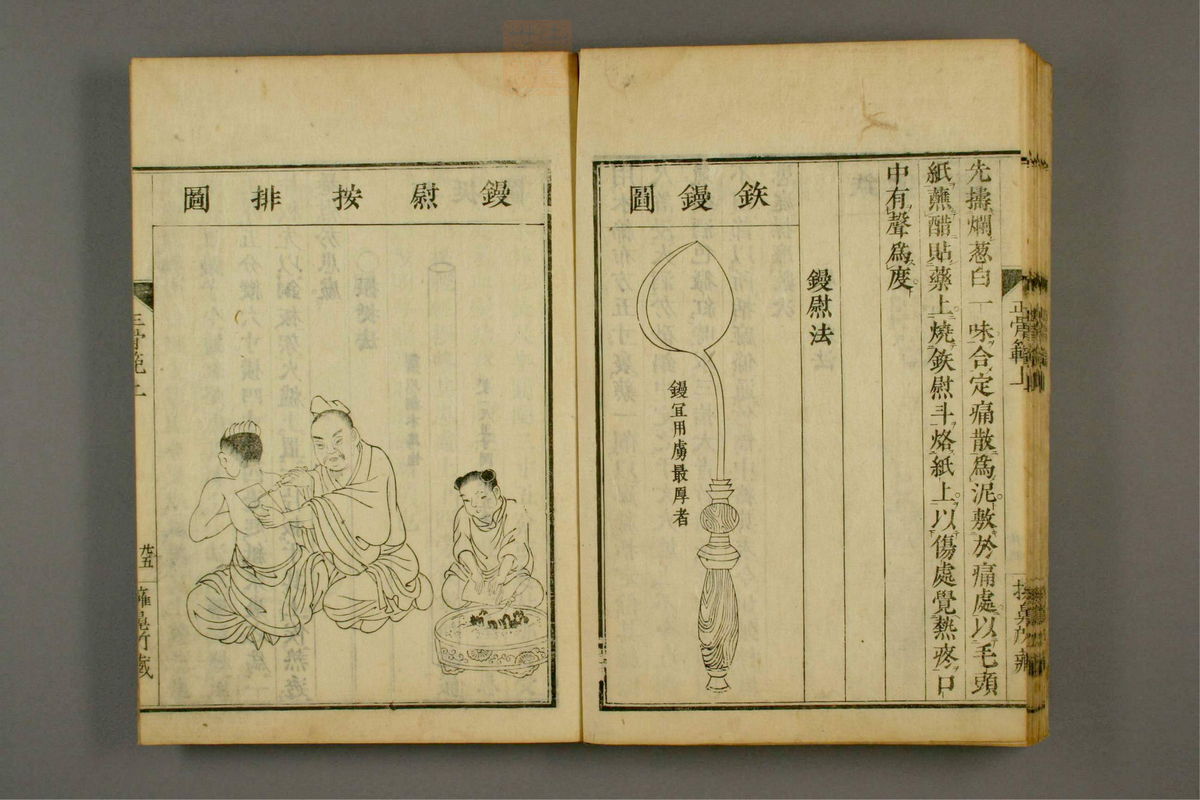 先擣爛葱白一味合定痛散爲泥敷於痛處以毛頭
紙蘸醋貼藥上燒鉄熨斗烙紙上以傷處覺熱疼口
中有聲爲度
鏝熨法
鉄鏝圖
鏝宜用厚最厚者
正骨範上
鏝熨按排圖
正骨範上
廿五